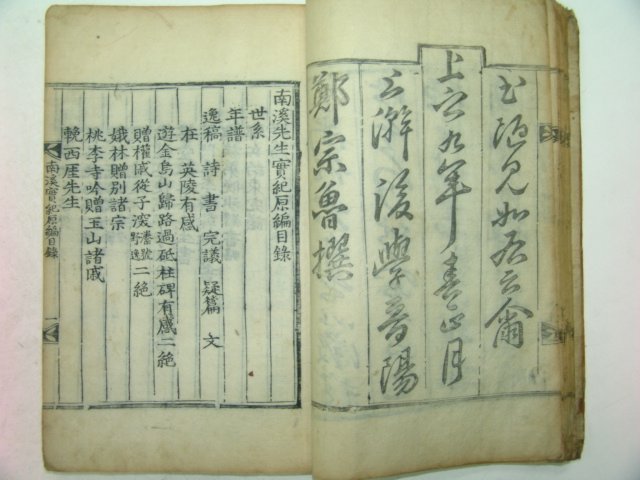 書陋見如右云爾
上之九年春正月
之澣後學晉陽
鄭宗魯撰
南溪先生實紀原編目錄
世系
年譜
逸稿 詩 書 完議 疑篇 文
在 英陵有感
遊金烏山歸路過砥柱碑有感二絶
贈權戚從子 號野逸二絶
娥林贈別諸宗
桃李寺吟贈玉山諸戚
輓西厓先生
南溪實紀原編目錄 一